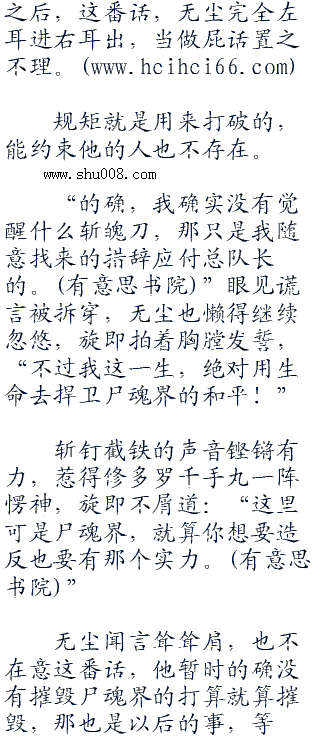 之后，这番话，无尘完全左
耳进右耳出，当做屁话置之
不理。(www.hcihci66.com)
规矩就是用来打破的，
能约束他的人也不存在。
www.shu008.com
“的确，我确实没有觉
醒什么斩魄刀，那只是我随
意找来的措辞应付总队长
的。(有意思书院)”眼见谎
言被拆穿，无尘也懒得继续
忽悠，旋即拍着胸膛发誓，
“不过我这一生，绝对用生
命去捍卫尸魂界的和平！”
斩钉截铁的声音铿锵有
力，惹得修多罗千手丸一阵
愣神，旋即不屑道：“这里
可是尸魂界，就算你想要造
反也要有那个实力。(有意思
书院)”
无尘闻言耸耸肩，也不
在意这番话，他暂时的确没
有摧毁尸魂界的打算就算摧
毁，那也是以后的事，等